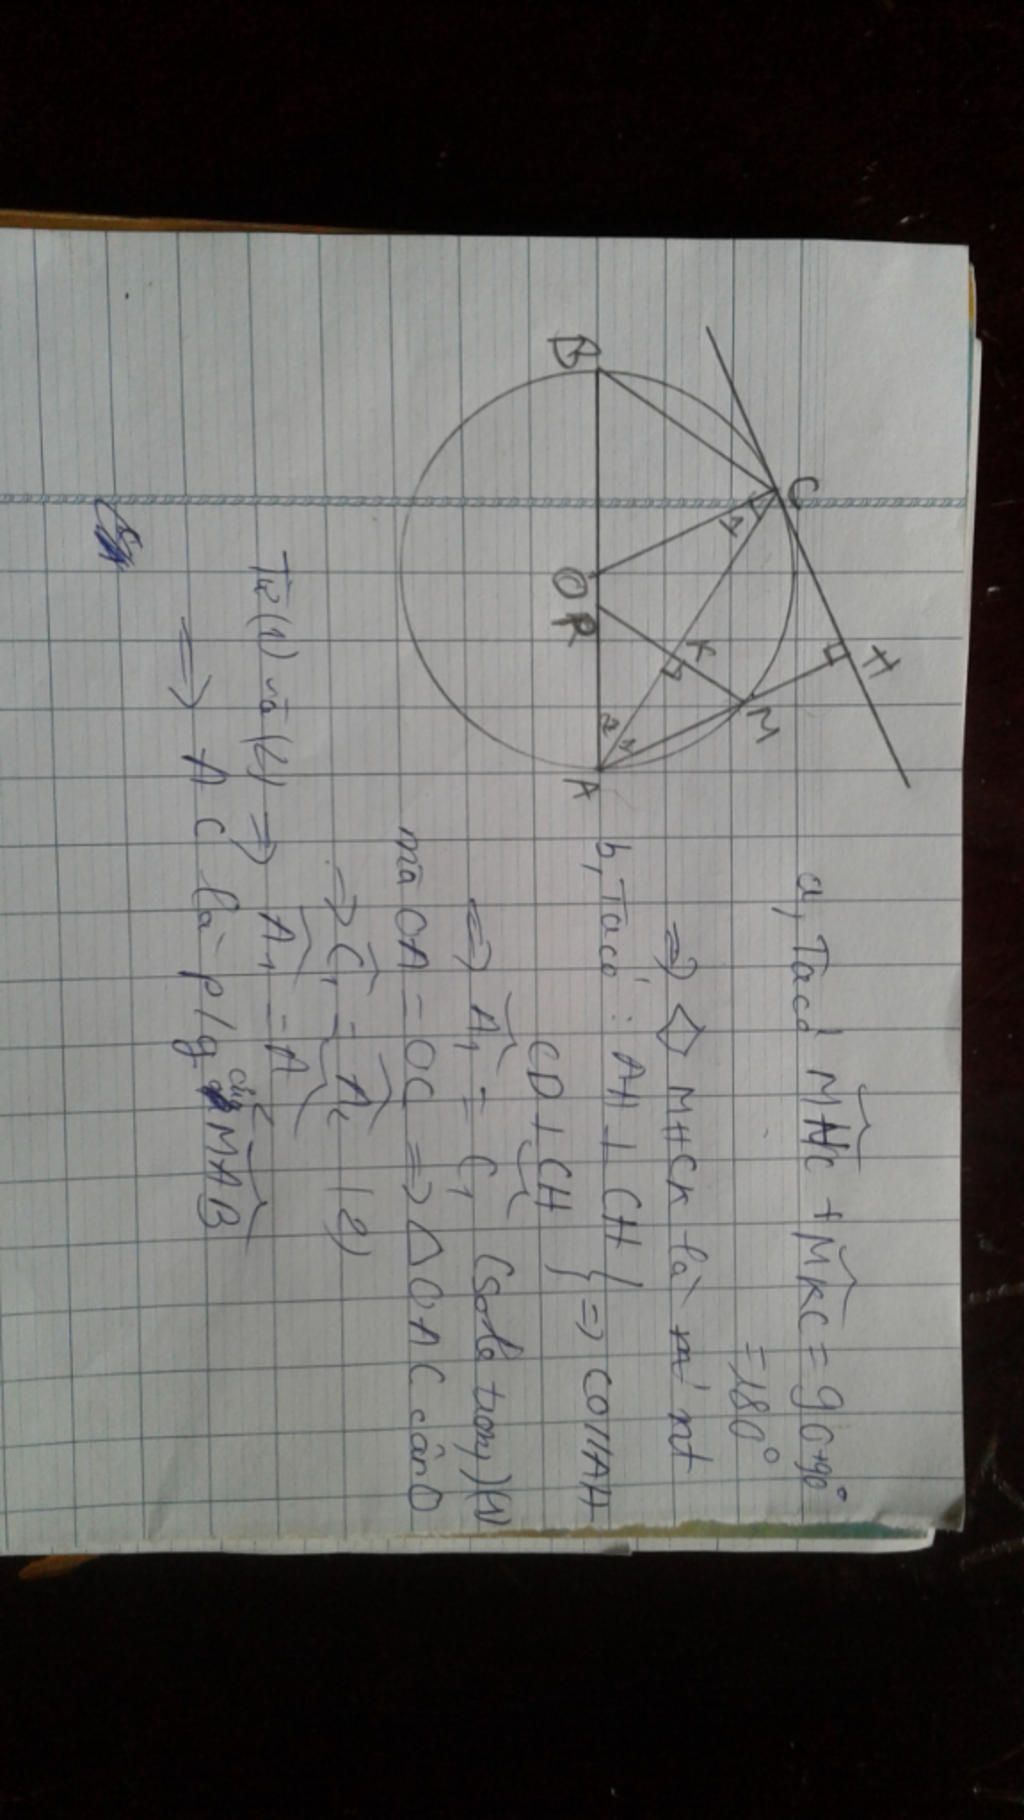 B
C
O
R
K
H
M
A
1
2
1
a, Ta có MHC + MKC = 90+90°
= 180°
=> ◇ MHCK là nt
b, Ta có : AH ⊥ CH } => CO//AH
CO ⊥ CH
=> A1 = C1 (sole trong) (1)
mà OA = OC => Δ OAC cân O
=> C1 = A2 (2)
Từ (1) và (2) => A1 = A
=> AC là p/g của MAB